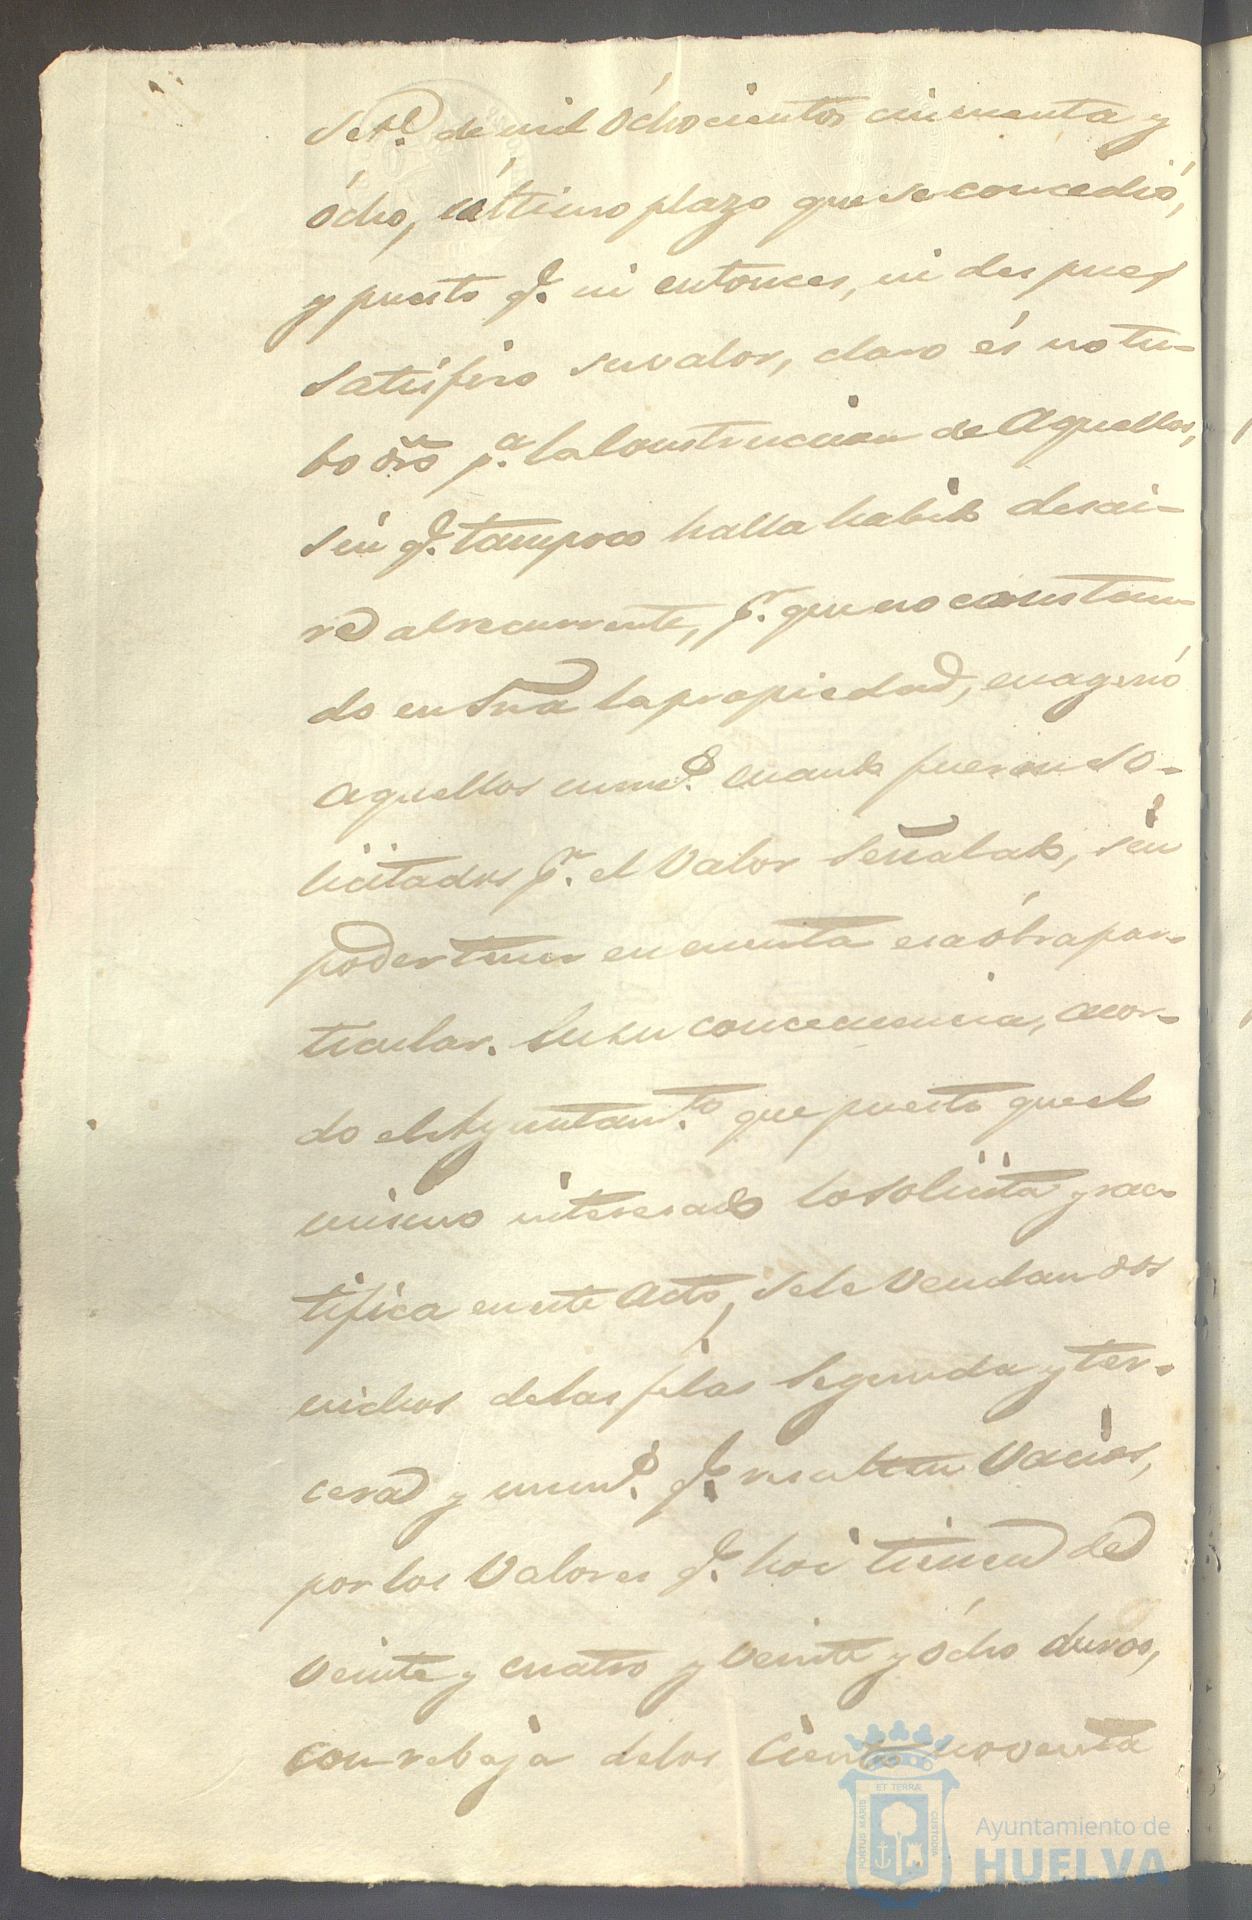 Setᵉ. de mil óchocientos cincuenta y
ócho, último plazo que se concedió,
y puesto q.ᵉ ni entonces, ni despues
satisfizo su valor, claro és no tu-
bo dro p.ᵃ la Construccion de Aquellos,
sin q.ᵉ tampoco halla habido desai-
re al recurrente, p.ʳ que no constan-
do en Sria la propiedad, enagenó
aquellos num.ˢ cuando fueron so-
licitados p.ʳ el Valor Señalado, sin
poder tener en cuenta esa óbra par-
ticular. En su concecuencia, acor-
do el Ayuntam.ᵗᵒ que puesto que el
mismo interesado lo solicita y rac-
tifica en este Acto, se le Vendan dos
nichos de las filas Segunda y ter-
cera y num.ˢ q.ᵉ resulten Vacios,
por los Valores q.ᵉ hoi tienen de
Veinte y cuatro y Veinte y ócho duros,
con rebaja de los Ciento noventa
ET TERRÆ
PORTUS MARIS
CUSTODIA
Ayuntamiento de
HUELVA